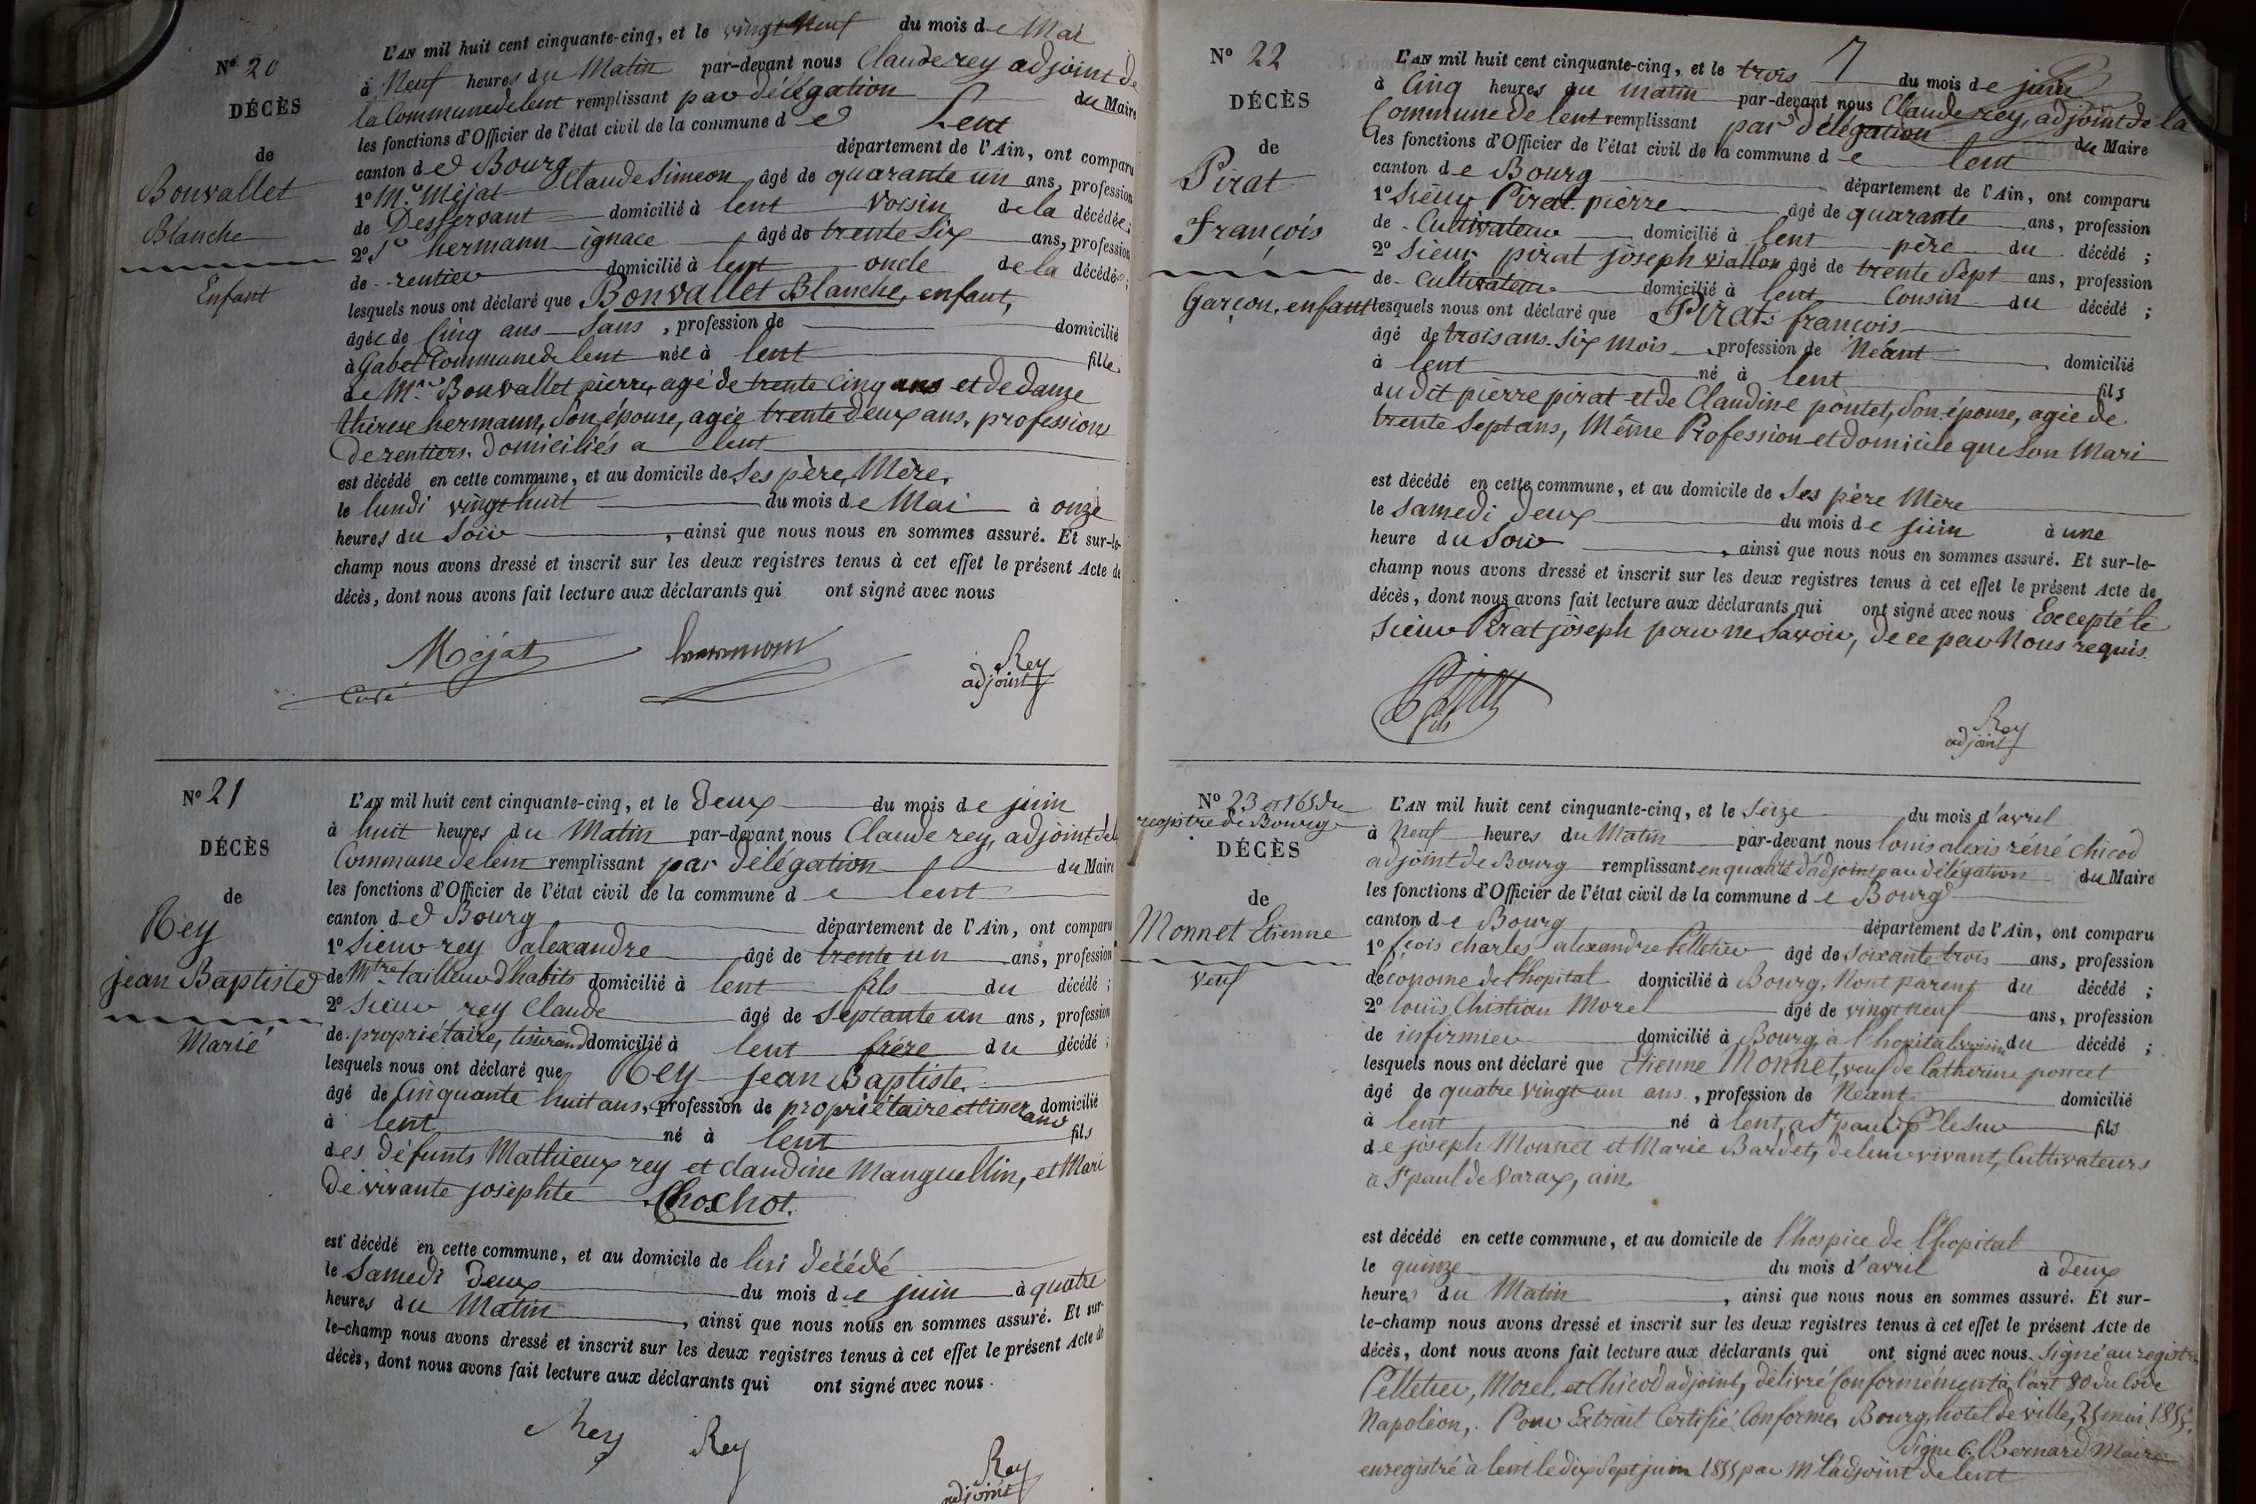 Nº 20
DÉCÈS
de
Bonvallet
Blanche
Enfant
L'AN mil huit cent cinquante-cinq, et le vingt Neuf du mois de Mai
à Neuf heures du Matin par-devant nous Claude rey adjoint de
la Commune de lent remplissant par délégation du Maire
les fonctions d'Officier de l'état civil de la commune de Lent
canton de Bourg département de l'Ain, ont comparu
1º Mr. Méjat Claude Simeon âgé de quarante un ans, profession
de Desservant domicilié à lent voisin de la décédée;
2º Sr hermann ignace âgé de trente Six ans, profession
de rentier domicilié à lent oncle de la décédée;
lesquels nous ont déclaré que Bonvallet Blanche, enfant,
âgée de Cinq ans Sans, profession de domicilié
à Gabet Commune de lent née à lent fille
de Mr. Bonvallet pierre, agé de trente cinq ans et de dame
thérese hermann, Son épouse, agée trente deux ans, profession
de rentiers. Domiciliés a lent
est décédé en cette commune, et au domicile de Ses père, Mère,
le lundi vingt huit du mois de Mai à onze
heures du Soir, ainsi que nous nous en sommes assuré. Et sur-le-
champ nous avons dressé et inscrit sur les deux registres tenus à cet effet le présent Acte de
décès, dont nous avons fait lecture aux déclarants qui ont signé avec nous
Méjat hermann Rey
Curé adjoint
Nº 21
DÉCÈS
de
Rey
jean Baptiste
Marié
L'AN mil huit cent cinquante-cinq, et le Deux du mois de juin
à huit heures du Matin par-devant nous Claude rey, adjoint de la
Commune de lent remplissant par délégation du Maire
les fonctions d'Officier de l'état civil de la commune de lent
canton de Bourg département de l'Ain, ont comparu
1º Sieur rey alexandre âgé de trente un ans, profession
de Mtre tailleur d'habits domicilié à lent fils du décédé;
2º Sieur rey Claude âgé de Septante un ans, profession
de propriétaire, tisserand domicilié à lent frère du décédé;
lesquels nous ont déclaré que Rey jean Baptiste
âgé de Cinquante huit ans, profession de propriétaire et tisserand domicilié
à lent né à lent fils
des défunts Mathieux rey et claudine Manguellin, et Mari
de vivante josephte Chochot.
est décédé en cette commune, et au domicile de lui décédé
le Samedi Deux du mois de juin à quatre
heures du Matin, ainsi que nous nous en sommes assuré. Et sur-
le-champ nous avons dressé et inscrit sur les deux registres tenus à cet effet le présent Acte de
décès, dont nous avons fait lecture aux déclarants qui ont signé avec nous.
Rey Rey Rey
adjoint
Nº 22
DÉCÈS
de
Pirat
François
Garçon, enfant
L'AN mil huit cent cinquante-cinq, et le trois du mois de juin
à Cinq heures du matin par-devant nous Claude rey, adjoint de la
Commune de lent remplissant par délégation du Maire
les fonctions d'Officier de l'état civil de la commune de lent
canton de Bourg département de l'Ain, ont comparu
1º Sieur Pirat pierre âgé de quarante ans, profession
de Cultivateur domicilié à lent père du décédé;
2º Sieur pirat joseph viallon âgé de trente Sept ans, profession
de Cultivateur domicilié à lent Cousin du décédé;
lesquels nous ont déclaré que Pirat françois
âgé de trois ans Six mois, profession de Néant domicilié
à lent né à lent fils
du dit pierre pirat et de Claudine pontet, Son épouse, agée de
trente Sept ans, Même Profession et domicile que Son Mari
est décédé en cette commune, et au domicile de Ses père Mère
le Samedi Deux du mois de juin à une
heure du Soir, ainsi que nous nous en sommes assuré. Et sur-le-
champ nous avons dressé et inscrit sur les deux registres tenus à cet effet le présent Acte de
décès, dont nous avons fait lecture aux déclarants qui ont signé avec nous Excepté le
Sieur Pirat joseph pour ne Savoir, de ce par Nous requis.
Pirat
Rey
adjoint
Nº 23 et 165 du
registre de Bourg
DÉCÈS
de
Monnet Etienne
Veuf
L'AN mil huit cent cinquante-cinq, et le Seize du mois d'avril
à Neuf heures du Matin par-devant nous louis alexis réné Chicod
adjoint de Bourg remplissant en qualité d'adjoint par délégation du Maire
les fonctions d'Officier de l'état civil de la commune de Bourg
canton de Bourg département de l'Ain, ont comparu
1º fçois charles alexandre Pelletier âgé de Soixante trois ans, profession
d'économe de l'hopital domicilié à Bourg, Nont parent du décédé;
2º louis Chistian Morel âgé de vingt Neuf ans, profession
de infirmier domicilié à Bourg, à l'hopital voisin du décédé;
lesquels nous ont déclaré que Etienne Monnet, veuf de Catherine poncet
âgé de quatre vingt un ans, profession de Néant domicilié
à lent né à lent, a St paul fils
de joseph Monnet et Marie Bardet, de leur vivant, Cultivateurs
a St paul de Varax, ain,
est décédé en cette commune, et au domicile de l'hospice de l'hopital
le quinze du mois d'avril à Deux
heures du Matin, ainsi que nous nous en sommes assuré. Et sur-
le-champ nous avons dressé et inscrit sur les deux registres tenus à cet effet le présent Acte de
décès, dont nous avons fait lecture aux déclarants qui ont signé avec nous. Signé au registre
Pelletier, Morel, et Chicod adjoint, délivré Conformément à l'art 80 du Code
Napoléon,. Pour Extrait Certifié Conforme, Bourg, hotel de ville, 25 mai 1855.
Signé C. Bernard Maire
enregistré à lent le dix Sept juin 1855 par M l'adjoint de lent